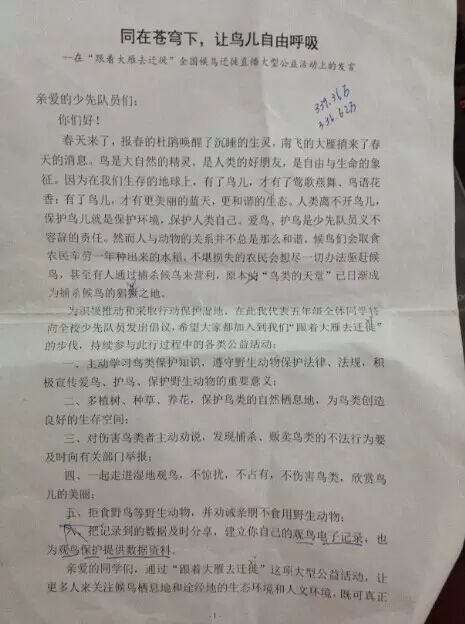 同在苍穹下，让鸟儿自由呼吸
--在“跟着大雁去迁徙”全国候鸟迁徙直播大型公益活动上的发言
339.36万
336.62万
亲爱的少先队员们：
你们好！
春天来了，报春的杜鹃唤醒了沉睡的生灵，南飞的大雁捎来了春
天的消息。鸟是大自然的精灵，是人类的好朋友，是自由与生命的象
征。因为在我们生存的地球上，有了鸟儿，才有了莺歌燕舞、鸟语花
香；有了鸟儿，才有更美丽的蓝天，更和谐的生态。人类离不开鸟儿，
保护鸟儿就是保护环境，保护人类自己。爱鸟、护鸟是少先队员义不
容辞的责任。然而人与动物的关系并不总是那么和谐。候鸟们会取食
农民辛劳一年种出来的水稻，不堪损失的农民会想尽一切办法驱赶候
鸟，甚至有人通过捕杀候鸟来营利，原本的“鸟类的天堂”已日渐成
为捕杀候鸟的之地。
为积极推动和采取行动保护湿地，在此我代表五年部全体同学
向全校少先队员发出倡议，希望大家都加入到我们“跟着大雁去迁徙”
的步伐，持续参与此行过程中的各类公益活动：
一、主动学习鸟类保护知识，遵守野生动物保护法律、法规，积
极宣传爱鸟、护鸟、保护野生动物的重要意义；
二、多植树、种草、养花，保护鸟类的自然栖息地，为鸟类创造
良好的生存空间；
三、对伤害鸟类者主动劝说，发现捕杀、贩卖鸟类的不法行为要
及时向有关部门举报；
四、一起走进湿地观鸟，不惊扰，不占有，不伤害鸟类，欣赏鸟
儿的美丽；
五、拒食野鸟等野生动物，并劝诫亲朋不食用野生动物；
六、把记录到的数据及时分享，建立你自己的观鸟电子记录，也
为观鸟保护提供数据资料。
亲爱的同学们，通过“跟着大雁去迁徙”这项大型公益活动，让
更多人来关注候鸟栖息地和途经地的生态环境和人文环境，既可真正
- 1 -